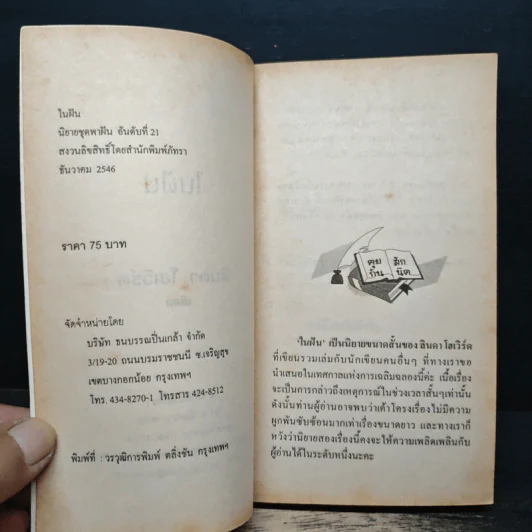 ในฝัน
นิยายชุดพาฝัน อันดับที่ 21
สงวนลิขสิทธิ์โดยสำนักพิมพ์ภัทรา
ธันวาคม 2546
ราคา 75 บาท
จัดจำหน่ายโดย
บริษัท ธนบรรณปิ่นเกล้า จำกัด
3/19-20 ถนนบรมราชชนนี ซ.เจริญสุข
เขตบางกอกน้อย กรุงเทพฯ
โทร. 434-8270-1 โทรสาร 424-8512
พิมพ์ที่ : วรวุฒิการพิมพ์ ตลิ่งชัน กรุงเทพฯ
คุยกันสักนิด
'ในฝัน' เป็นนิยายขนาดสั้นของ ลินดา โฮเวิร์ด
ที่เขียนรวมเล่มกับนักเขียนคนอื่นๆ ที่ทางเราขอ
นำเสนอในเทศกาลแห่งการเฉลิมฉลองนี้ค่ะ เนื้อเรื่อง
จะเป็นการกล่าวถึงเหตุการณ์ในช่วงเวลาสั้นๆเท่านั้น
ดังนั้นท่านผู้อ่านอาจพบว่าเค้าโครงเรื่องไม่มีความ
ผูกพันซับซ้อนมากเท่าเรื่องขนาดยาว และทางเราก็
หวังว่านิยายสองเรื่องนี้คงจะให้ความเพลิดเพลินกับ
ผู้อ่านได้ในระดับหนึ่งนะคะ